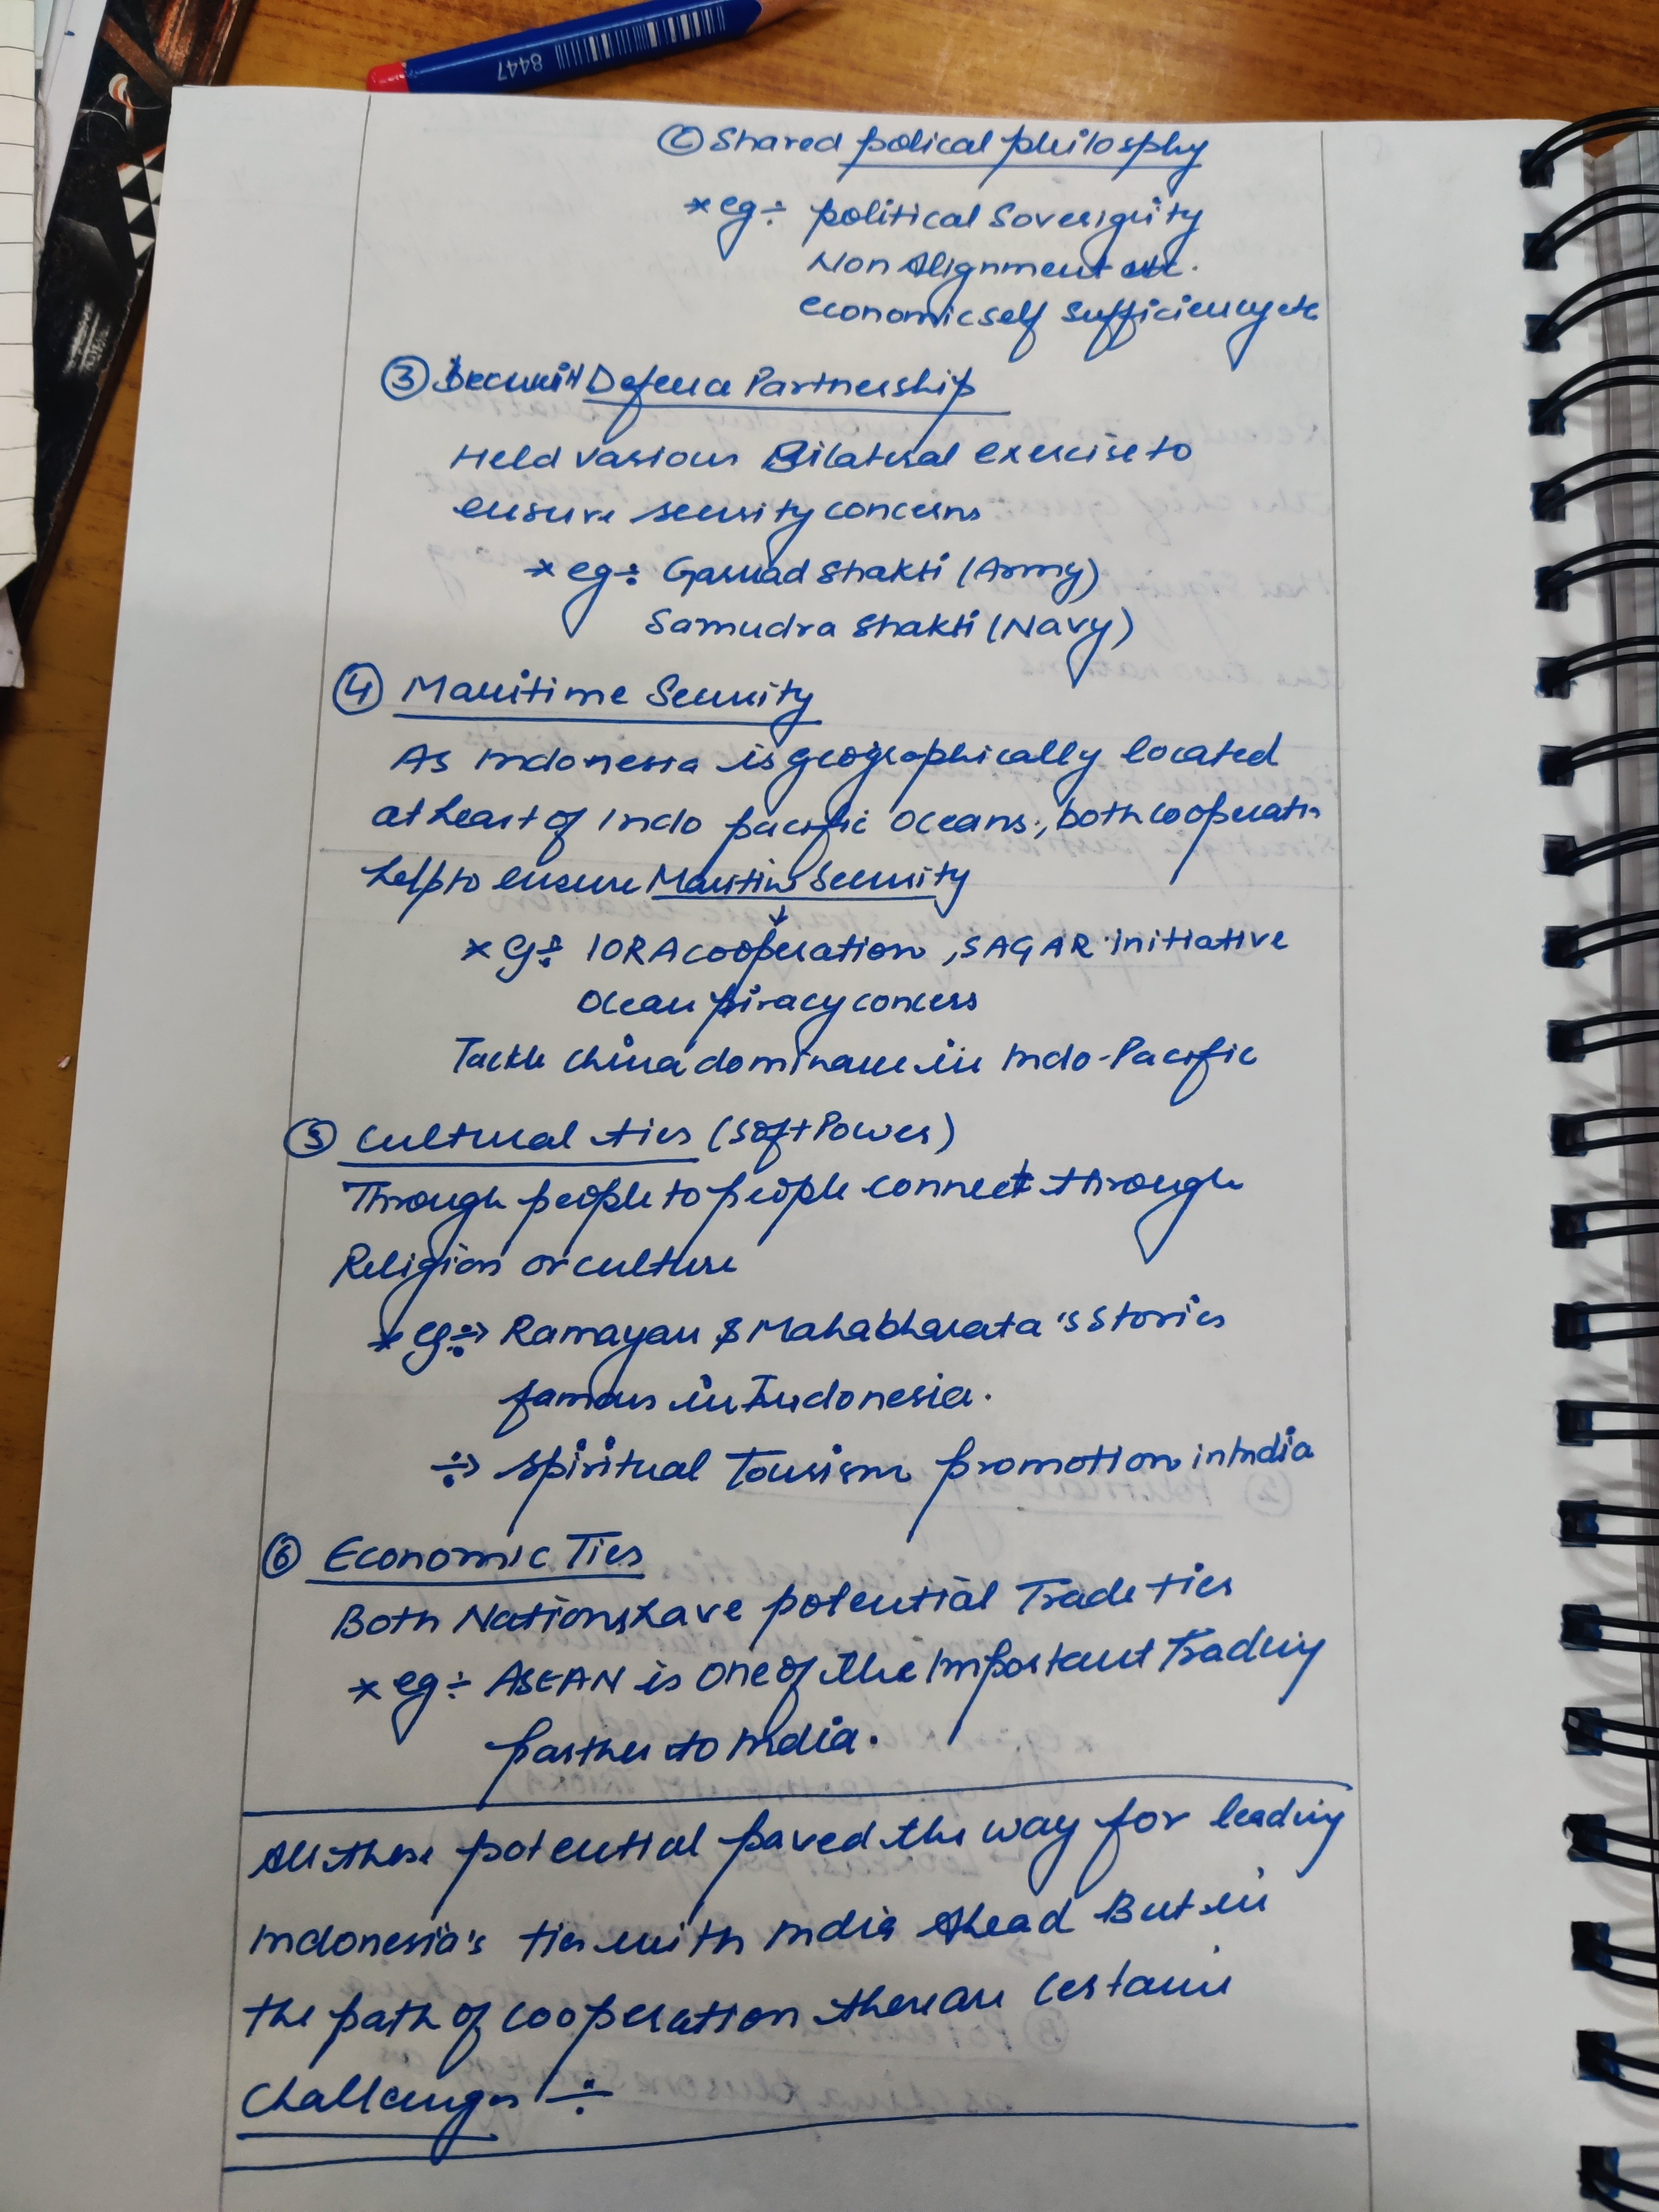 8447
Ⓒ Shared polical philosphy
* eg ÷ political Soverignity
Non Alignment etc.
economic self sufficiency etc
③ Defence Partnership
Held various Bilateral exercise to
ensure security concerns
* eg ÷ Garuad Shakti (Army)
Samudra Shakti (Navy)
④ Maritime Security
As Indonesia is geographically located
at heart of Indo pacific Oceans, both cooperatn
help to ensure Maritime Security
↓
* eg ÷ IORA cooperation, SAGAR initiative
Ocean piracy concers
Tackle China dominance in Indo-Pacific
⑤ Cultural ties (Soft Power)
Through people to people connect through
Religion or culture
* eg ÷> Ramayan & Mahabharata's Stories
famous in Indonesia.
÷> Spiritual Tourism promotion in India
⑥ Economic Ties
Both Nations have potential Trade ties
* eg ÷ ASEAN is one of the important Trading
partner to India.
All these potential paved the way for leading
Indonesia's ties with India Ahead But in
the path of cooperation there are certain
Challenges ÷